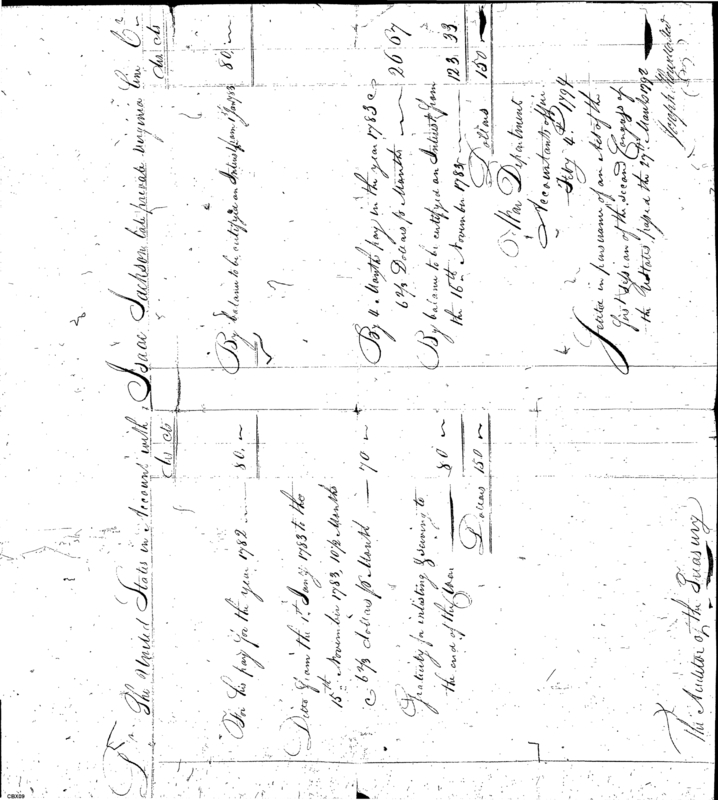 Dr. The United States in Account with, Isaac Jackson late private Virginia line Cr
Dls Cts
For his pay for the year 1782 — 80. „
Ditto from the 1st Jany 1783 to the
15th November 1783, 10½ Months
@ 6 2/3 dollars p Month — 70 „
Gratuity for enlisting & serving to
the end of the War — 80 „
Dollars 150 „
Dls Cts
By balance to be certified on Interest from 1 Jany 1783 80. „
By 4 Months pay in the year 1783 @
6 2/3 Dollars p Month — 26 67
By balance to be certified on Interest from
the 16th November 1783 — 123. 33
Dollars 150 „
War Department
Accountants office
Feby 4th 1794
Settled in pursuance of an Act of the
first session of the second Congress of
the UStates passed the 27th March 1792
Joseph
The Auditor of the Treasury
CBX09